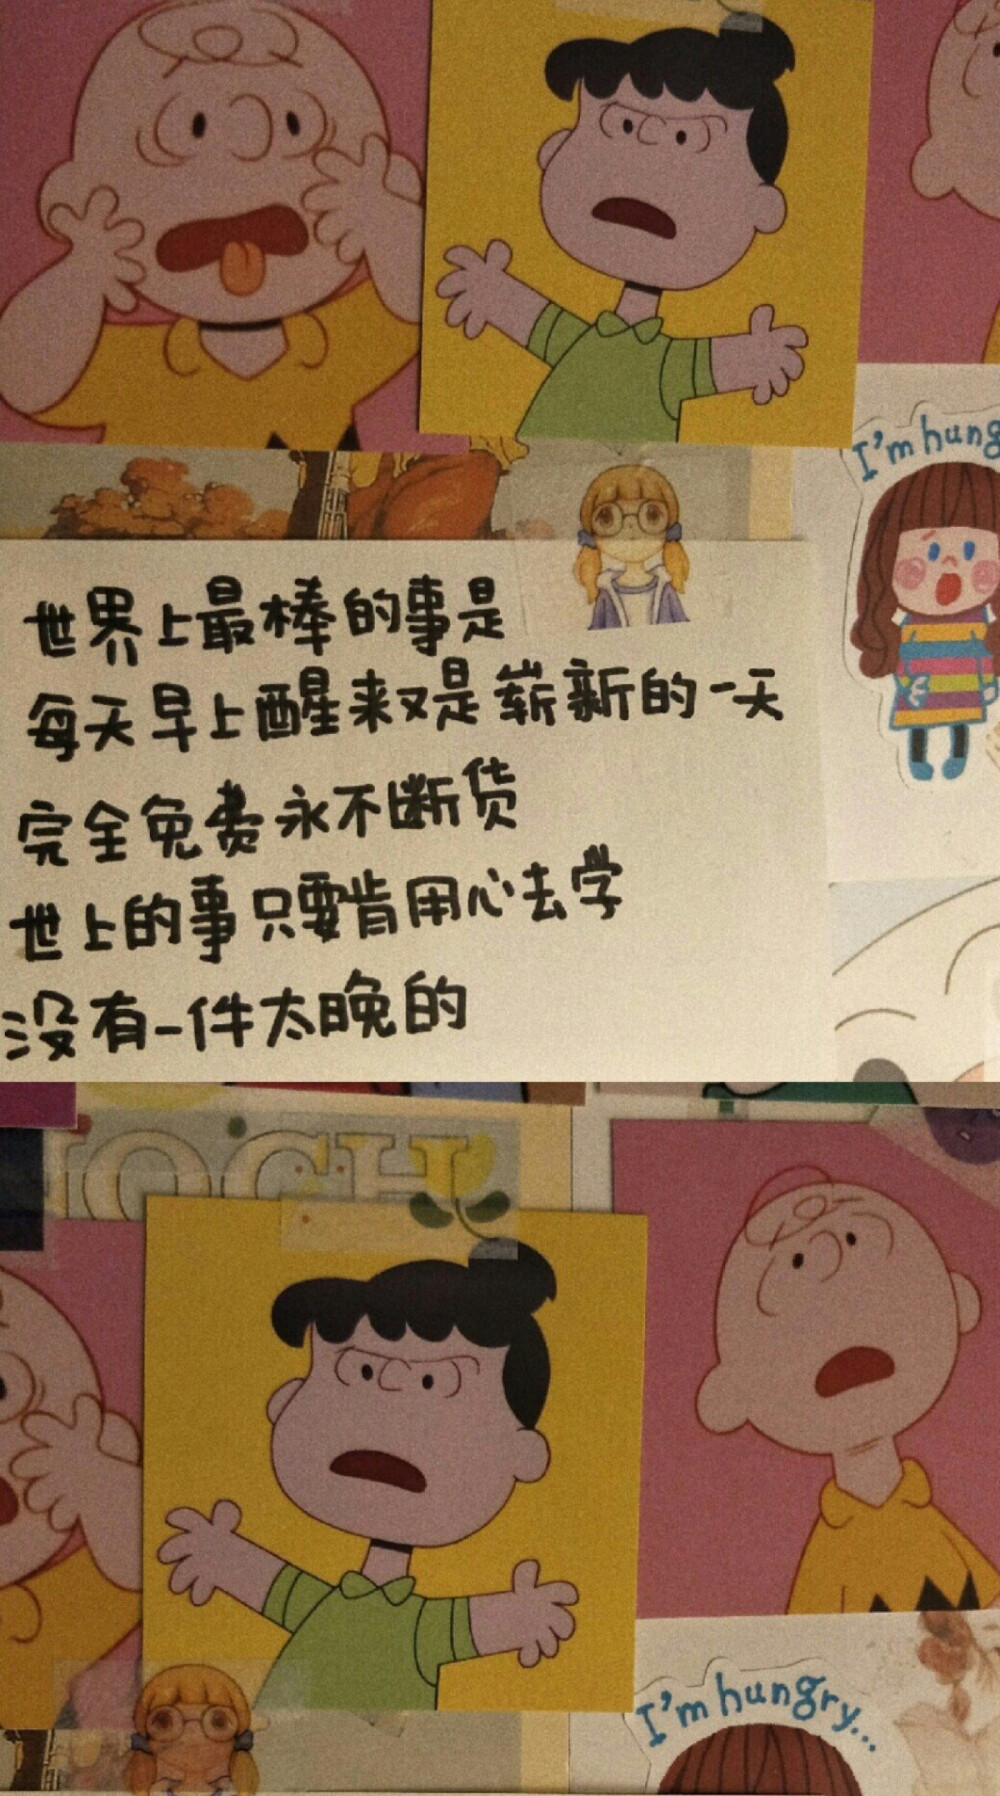 I'm hung
世界上最棒的事是
每天早上醒来又是崭新的一天
完全免费永不断货
世上的事只要肯用心去学
没有一件太晚的
OCH
I'm hungry...